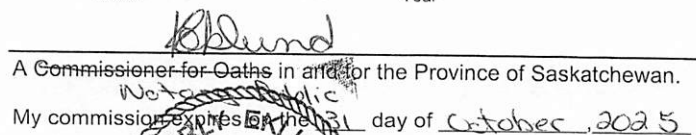 BEklund
A Commissioner for Oaths in and for the Province of Saskatchewan.
Notary Public
My commission expires on the 31 day of October, 2025